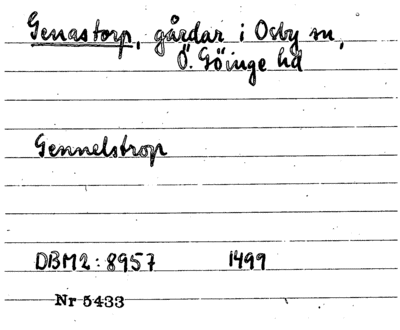 Genastorp, gårdar i Osby sn,
Ö. Göinge hd
Gennelstrop
DBM2: 8957 1499
Nr 5433